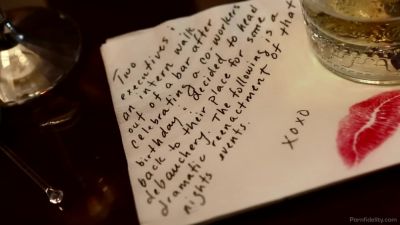 Two
executives &
an intern walk
out of a bar after
celebrating a co-workers
birthday & decided to head
back to their place for some
debauchery. The following is a
dramatic reenactment of that
nights events.
xoxo
Pornfidelity.com